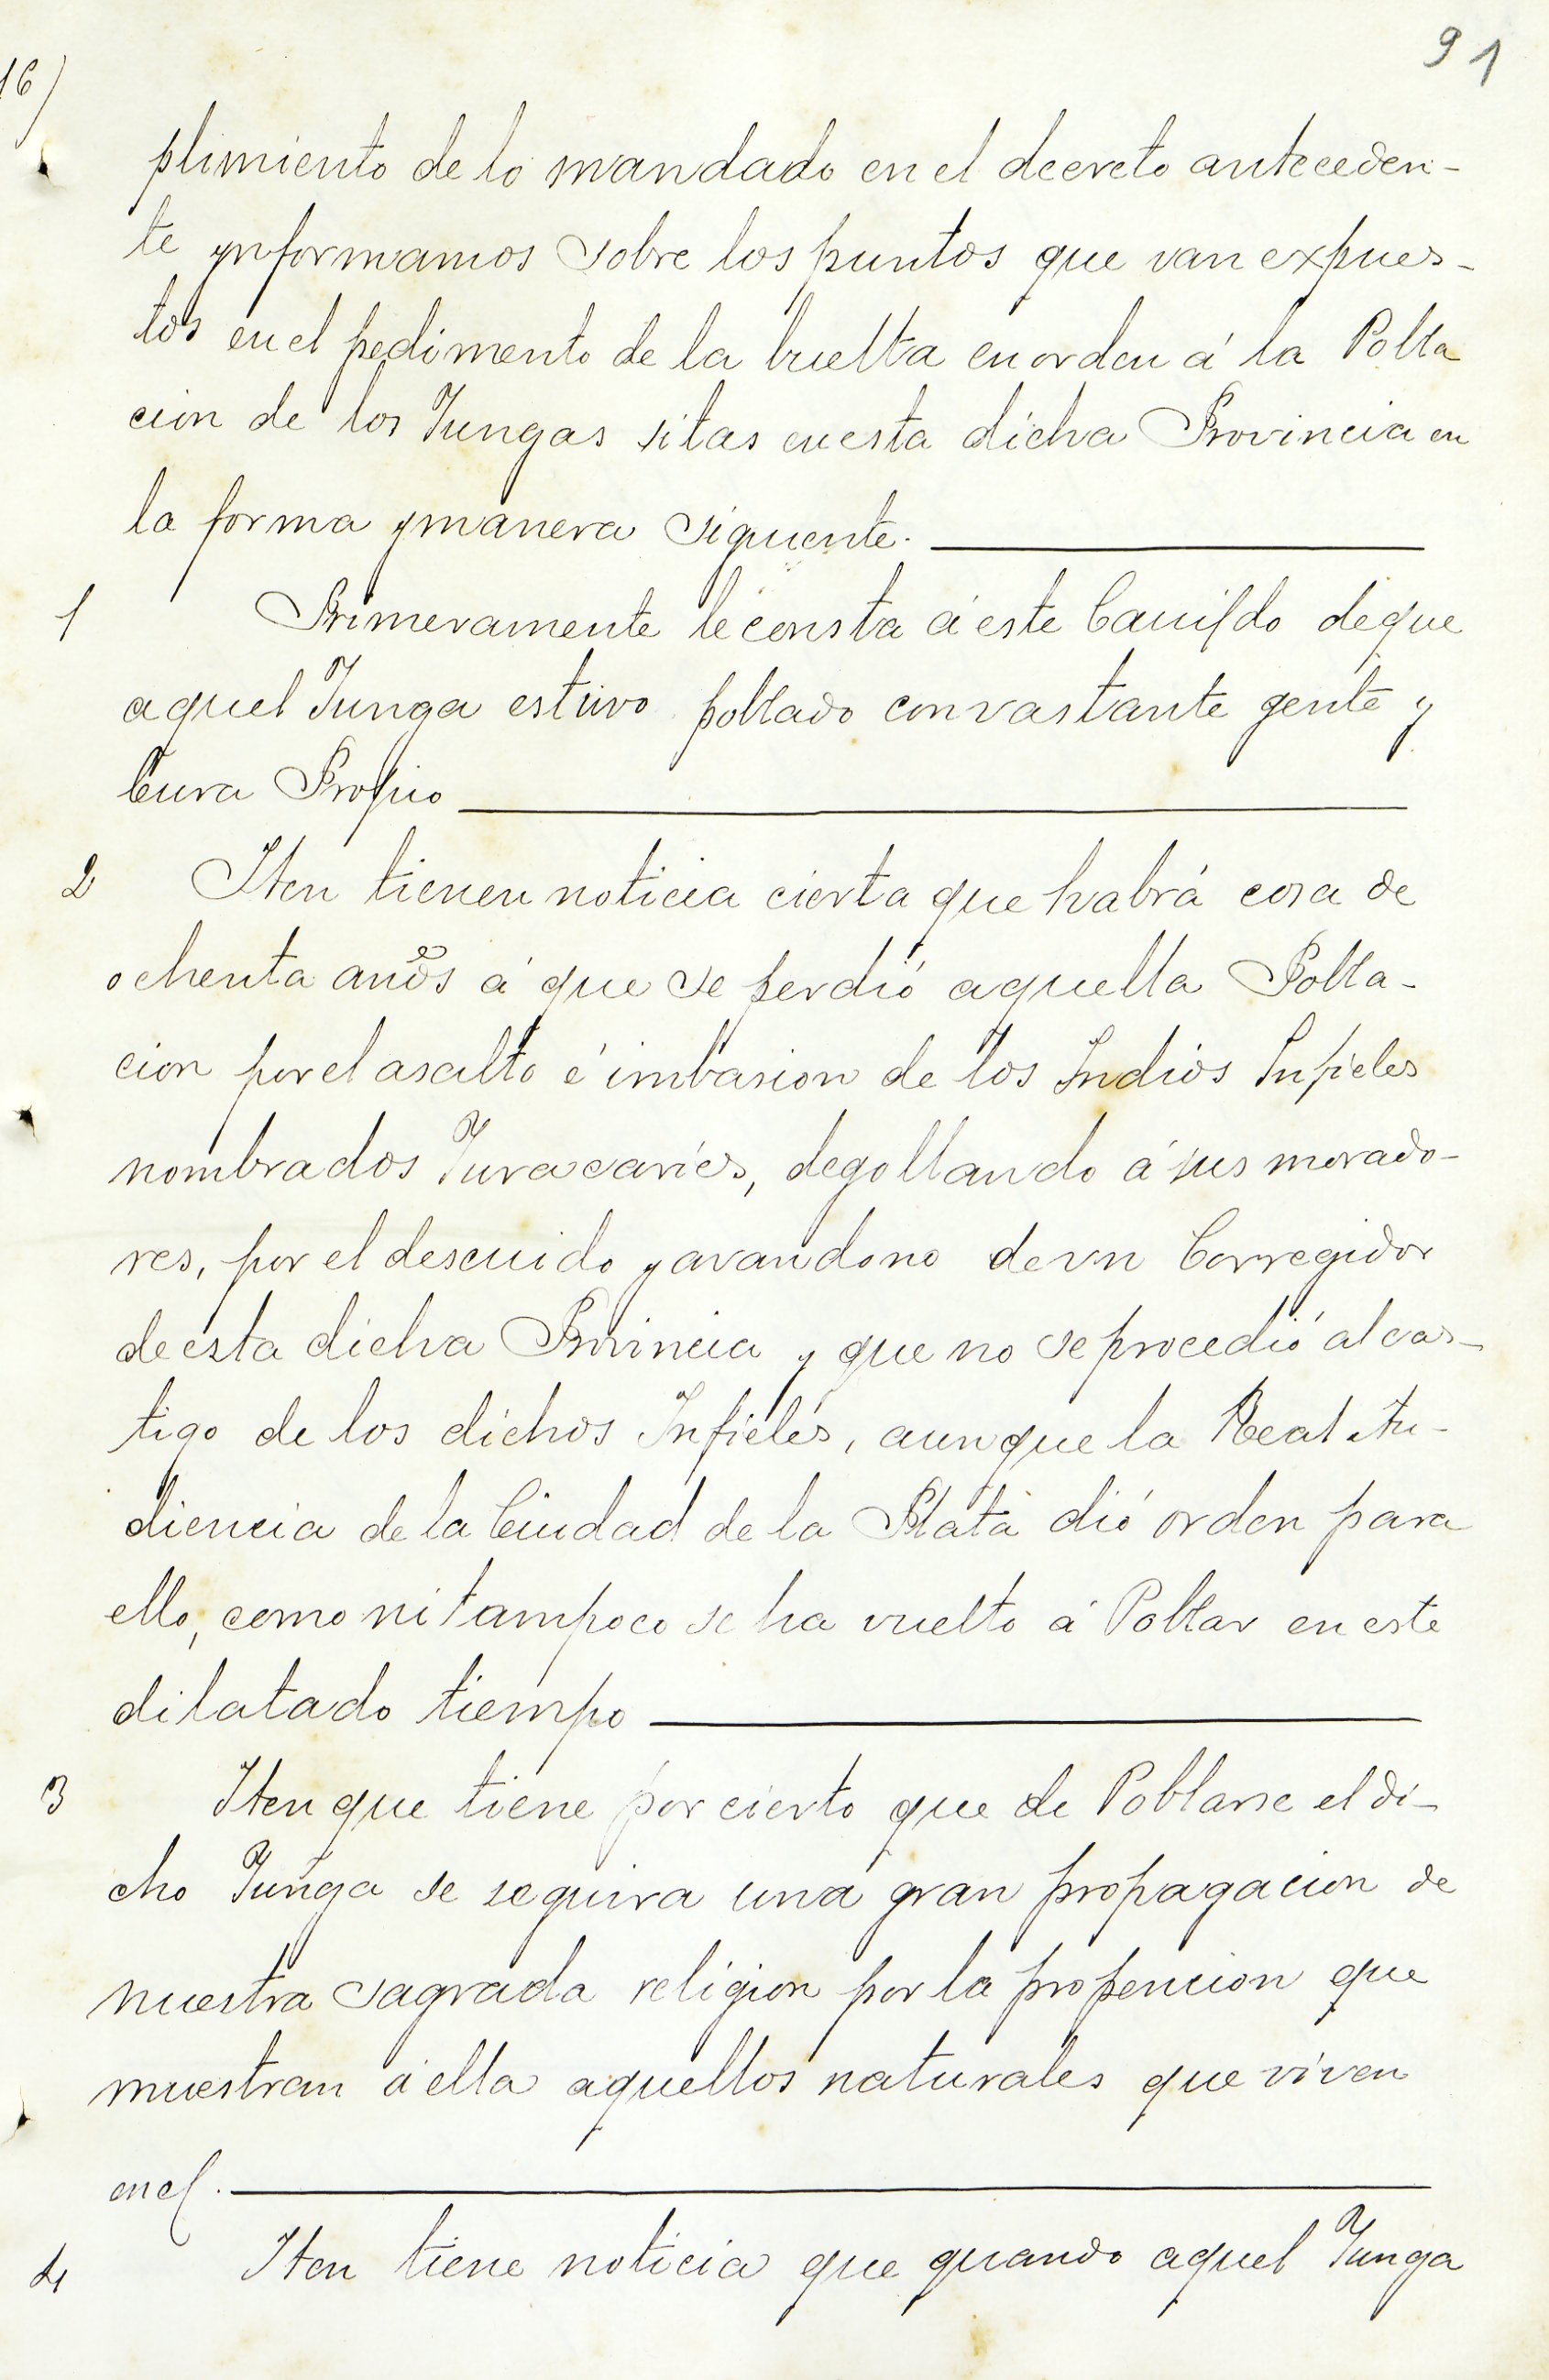 91
16)
plimiento de lo mandado en el decreto anteceden-
te ynformamos sobre los puntos que van expues-
tos en el pedimento de la buelta en orden á la Pobla
cion de los Yungas sitas en esta dicha Provincia en
la forma y manera siguente.
1 Primeramente le consta á este Cauildo de que
aquel Yunga estuvo poblado con vastante gente y
Cura Propio
2 Iten tienen noticia cierta que habrá cosa de
ochenta años á que se perdió aquella Pobla-
cion por el asalto é imbasion de los Indios Infieles
nombrados Yuracaries, degollando á sus morado-
res, por el descuido y avandono de vn Corregidor
de esta dicha Provincia y que no se procedió al cas-
tigo de los dichos Infieles, aunque la Real Au-
diencia de la Ciudad de la Plata dió orden para
ello, como ni tampoco se ha vuelto á Poblar en este
dilatado tiempo
3 Iten que tiene por cierto que de Poblarse el di-
cho Yunga se seguira una gran propagacion de
nuestra sagrada religion por la propencion que
muestran á ella aquellos naturales que viven
en el.
4 Iten tiene noticia que quando aquel Yunga